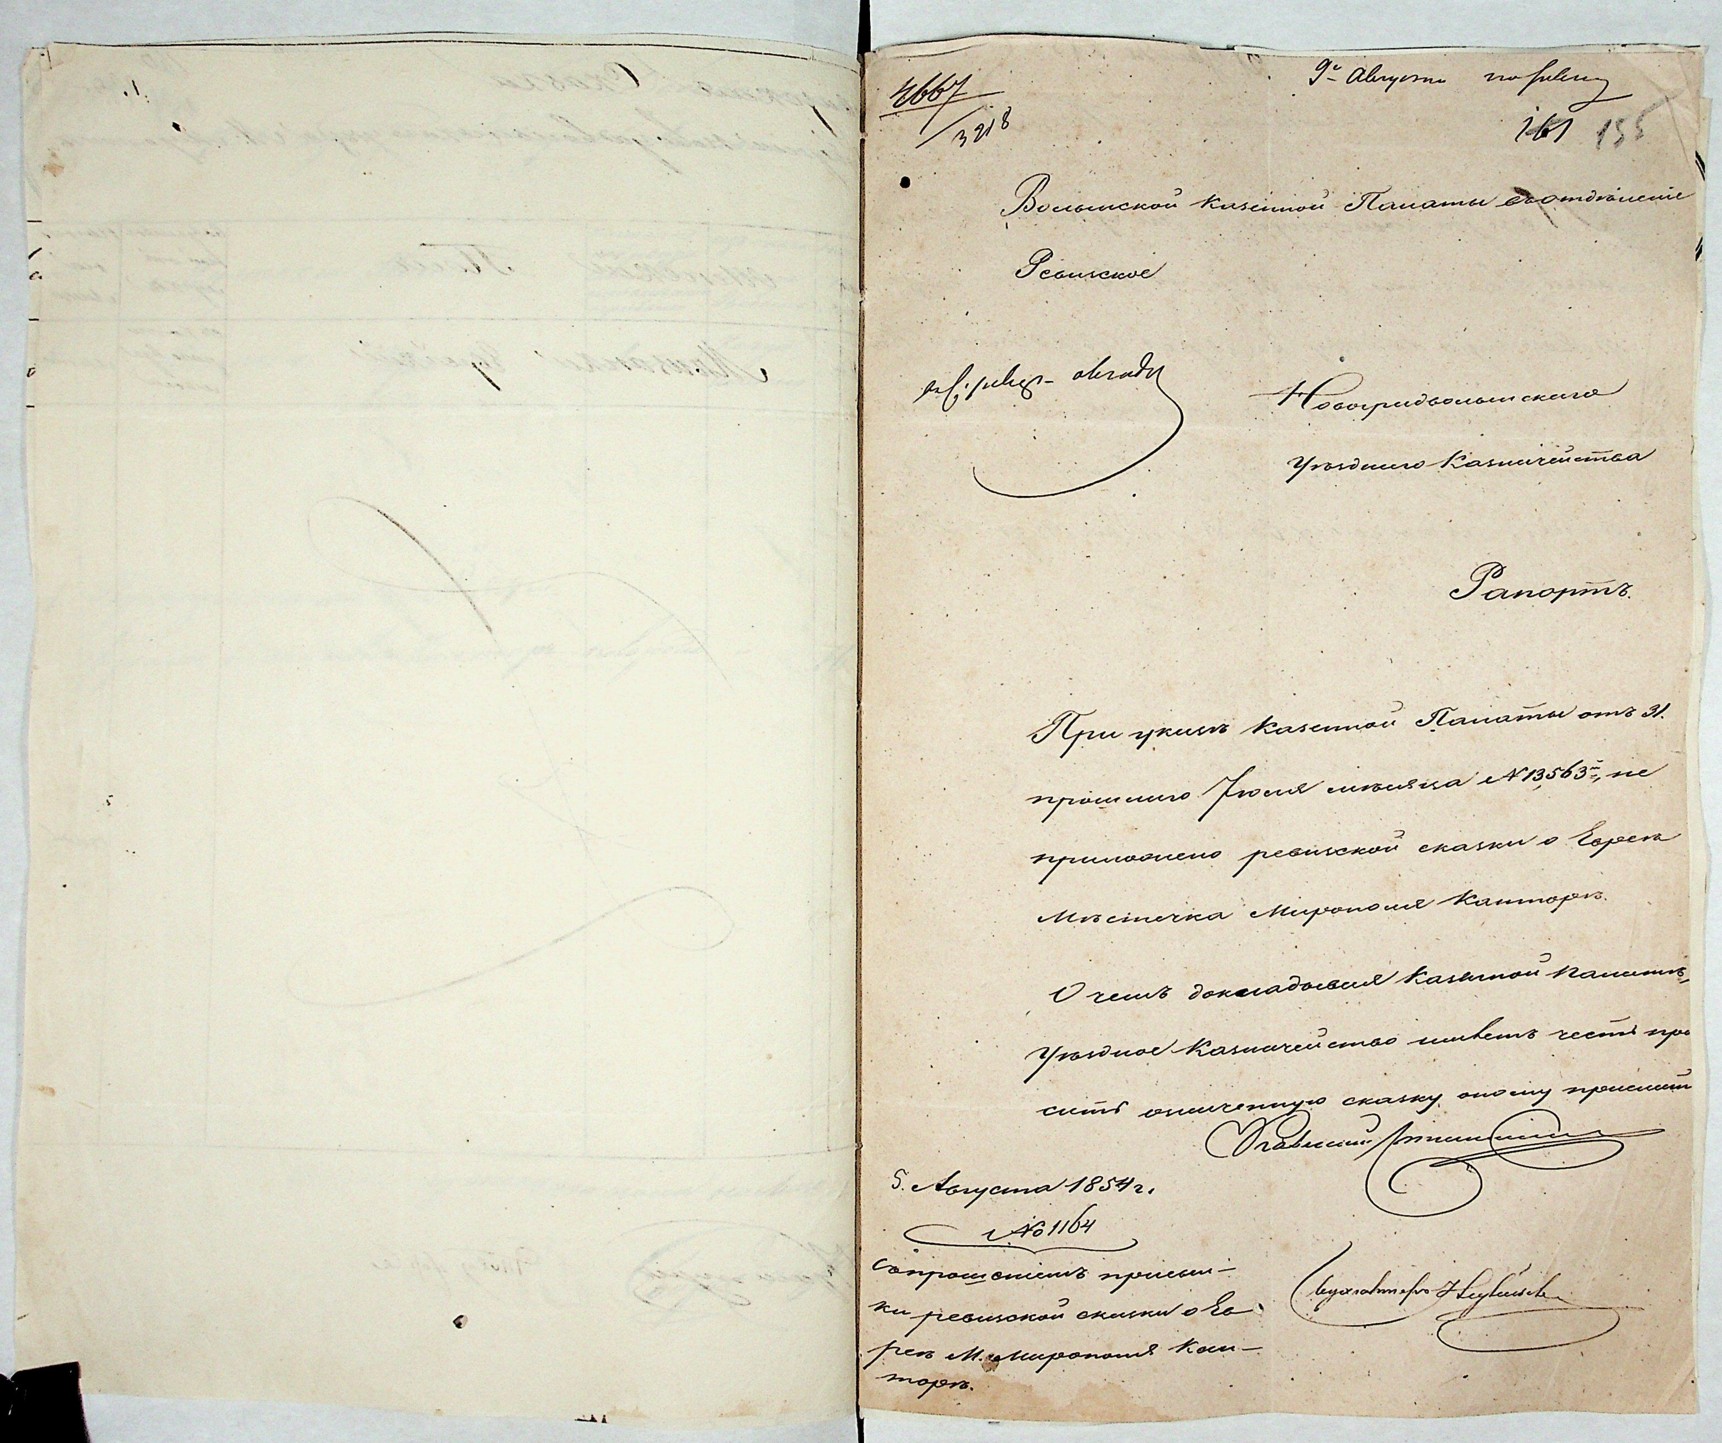 4667
3918
9го Августа по ревиз
161 155
Волынской Казенной Палаты въ отдѣленіе
Ревизское
Новоградволынскаго
Уѣзднаго Казначейства
Рапортъ.
При указѣ Казенной Палаты отъ 31.
прошлаго Іюля мѣсяца № 13,563й, не
приложено ревизской сказки о Евреѣ
Мѣстечка Мирополя Канторѣ.
О чемъ докладывая Казенной Палатѣ,
Уѣздное Казначейство имѣетъ честь про
сить означенную сказку оному прислать
5. Августа 1854 г.
№ 1164
Съ прошеніемъ присыл-
ки ревизской сказки о Ев
реѣ М. Мирополя Кан-
торѣ.
Бухгалтеръ